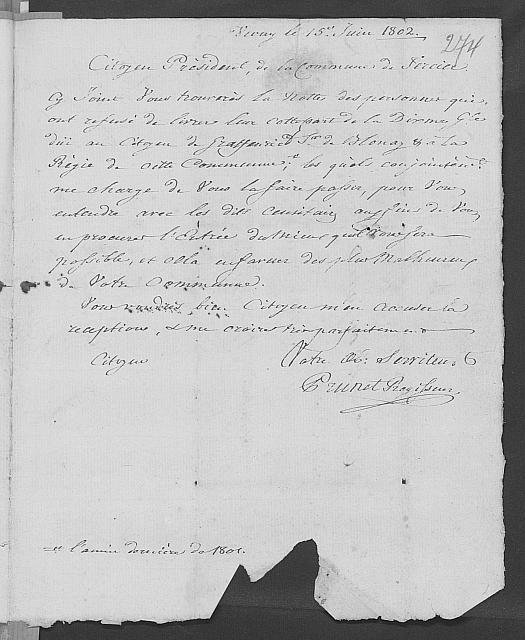 Vevay le 15e. Juin 1802.
274
Citoyen Président, de la Commune de
Cy Joint Vous trouverés la Notte des personnes qui
ont refusé de livrer leur cotte part de la Dixme Gle
düe au Citoyen de Graffenried Sr. de Blonay & à la
Régie de cette Commune, les quels conjointemt.
me charge de Vous la faire passer, pour Vous
entendre avec les dits censitaires
en procurer l'Entrée du Mieux qu'il Vous sera
possible, et cela en faveur des plus Malheureux
de Votre Commune.
Vous voudrés bien Citoyen m'en accuser la
receptions, & me croire tres parfaitement
Citoyen
Votre Serviteur
Prunet Regisseur.
l'année dernière de 1801.